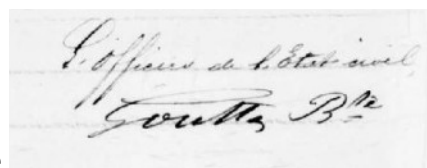 L'officier de l'Etat civil
Goutta Bte